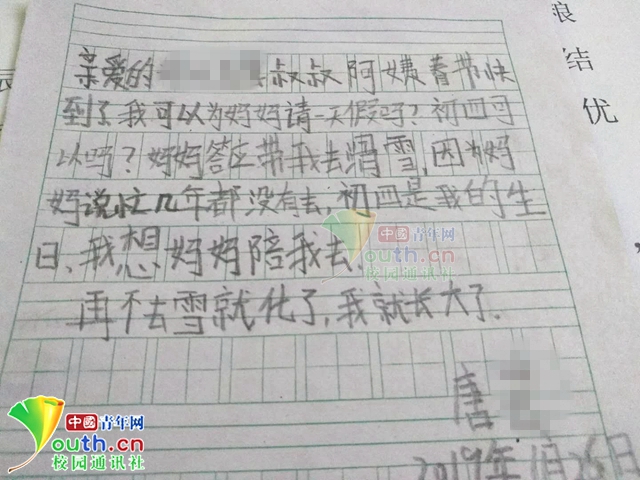 亲爱的 叔叔阿姨春节快
到了我可以为妈妈请一天假吗?初四可
以吗?妈妈答应带我去滑雪,因为妈
妈说忙几年都没有去,初四是我的生
日、我想妈妈陪我去.
再不去雪就化了,我就长大了.
唐
2019年1月26日
浪
结
优
中國青年网
Youth.cn
校园通讯社
中國青年网
Youth.cn
校园通讯社